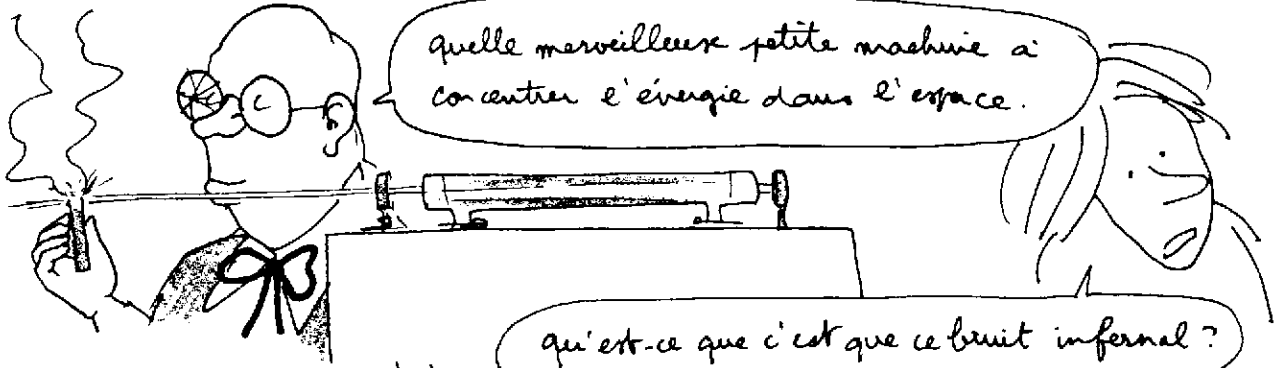 quelle merveilleuse petite machine à
concentrer l'énergie dans l'espace.
qu'est-ce que c'est que ce bruit infernal ?